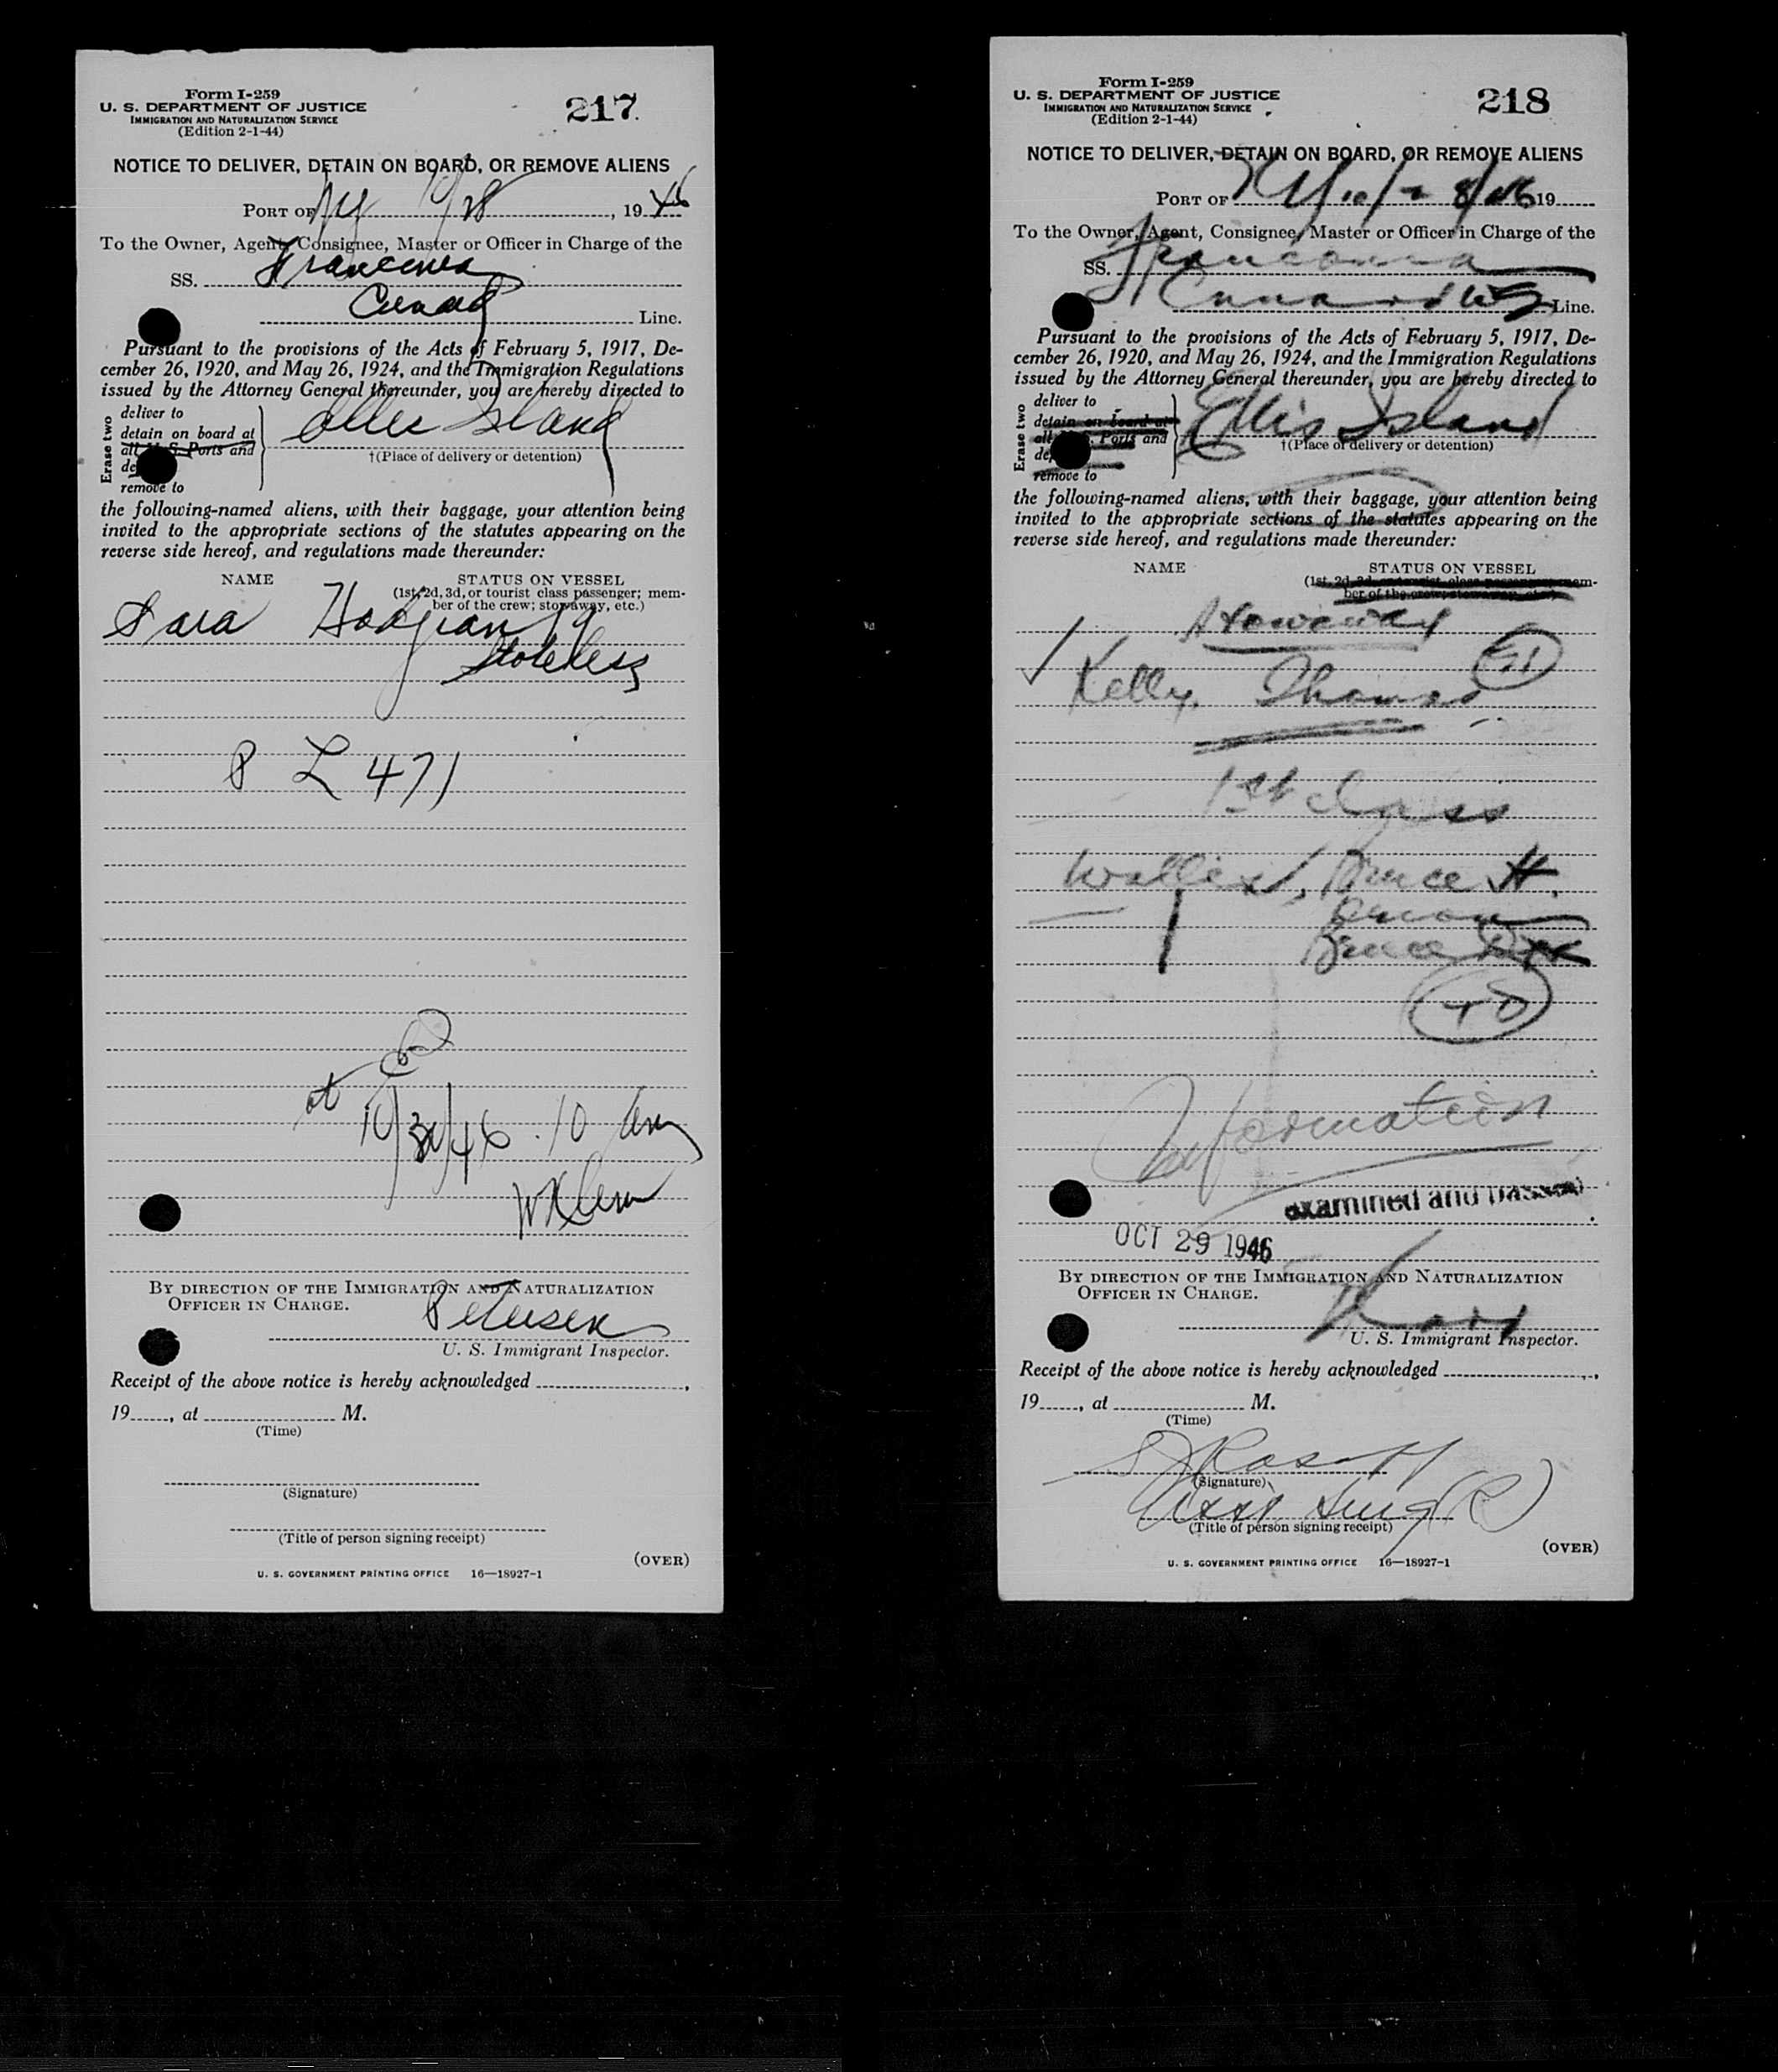 Form I-259
U. S. DEPARTMENT OF JUSTICE
IMMIGRATION AND NATURALIZATION SERVICE
(Edition 2-1-44)
217
NOTICE TO DELIVER, DETAIN ON BOARD, OR REMOVE ALIENS
PORT OF NY 10/28, 1946
To the Owner, Agent, Consignee, Master or Officer in Charge of the
SS. Franconia
Cunard Line.
Pursuant to the provisions of the Acts of February 5, 1917, De-
cember 26, 1920, and May 26, 1924, and the Immigration Regulations
issued by the Attorney General thereunder, you are hereby directed to
Erase two
deliver to
detain on board at
all U. S. Ports and
de
remove to
Ellis Island
†(Place of delivery or detention)
the following-named aliens, with their baggage, your attention being
invited to the appropriate sections of the statutes appearing on the
reverse side hereof, and regulations made thereunder:
NAME STATUS ON VESSEL
(1st, 2d, 3d, or tourist class passenger; mem-
ber of the crew; stowaway, etc.)
Sara 19
Stateless
P L 471
at
10/30/46 10 am
BY DIRECTION OF THE IMMIGRATION AND NATURALIZATION
OFFICER IN CHARGE.
Petersen
U. S. Immigrant Inspector.
Receipt of the above notice is hereby acknowledged
19, at M.
(Time)
(Signature)
(Title of person signing receipt)
(OVER)
U. S. GOVERNMENT PRINTING OFFICE 16—18927-1
Form I-259
U. S. DEPARTMENT OF JUSTICE
IMMIGRATION AND NATURALIZATION SERVICE
(Edition 2-1-44)
218
NOTICE TO DELIVER, DETAIN ON BOARD, OR REMOVE ALIENS
PORT OF NY 10/28/46 19
To the Owner, Agent, Consignee, Master or Officer in Charge of the
SS. Franconia
Cunard WS Line.
Pursuant to the provisions of the Acts of February 5, 1917, De-
cember 26, 1920, and May 26, 1924, and the Immigration Regulations
issued by the Attorney General thereunder, you are hereby directed to
Erase two
deliver to
detain on board at
all Ports and
de
remove to
Ellis Island
†(Place of delivery or detention)
the following-named aliens, with their baggage, your attention being
invited to the appropriate sections of the statutes appearing on the
reverse side hereof, and regulations made thereunder:
NAME STATUS ON VESSEL
(1st, 2d, 3d, or tourist class passenger; mem-
ber of the crew; stowaway, etc.)
Stowaway
Kelly, Thomas
1st Class
Bruce H.
Bruce
Information
examined and passed
OCT 29 1946
BY DIRECTION OF THE IMMIGRATION AND NATURALIZATION
OFFICER IN CHARGE.
U. S. Immigrant Inspector.
Receipt of the above notice is hereby acknowledged
19, at M.
(Time)
(Signature)
(Title of person signing receipt)
(OVER)
U. S. GOVERNMENT PRINTING OFFICE 16—18927-1